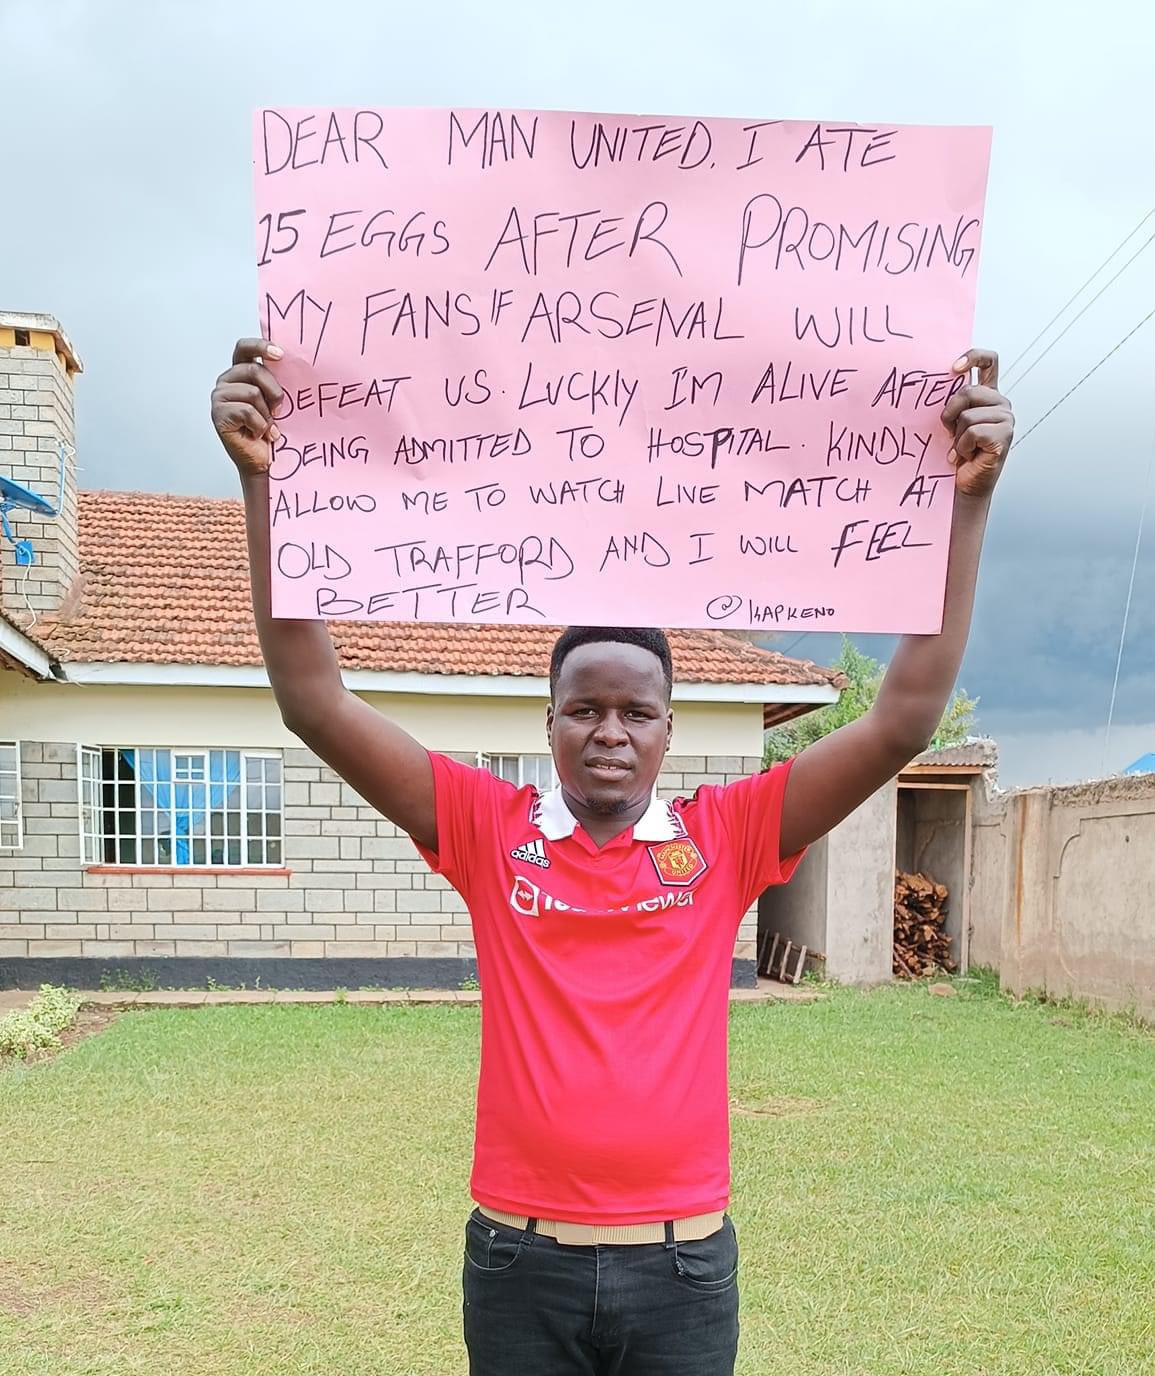 DEAR MAN UNITED. I ATE
15 EGGS AFTER PROMISING
MY FANS IF ARSENAL WILL
DEFEAT US. LUCKLY I'M ALIVE AFTER
BEING ADMITTED TO HOSPITAL. KINDLY
ALLOW ME TO WATCH LIVE MATCH AT
OLD TRAFFORD AND I WILL FEEL
BETTER
@KAPKENO
adidas
MANCHESTER
UNITED